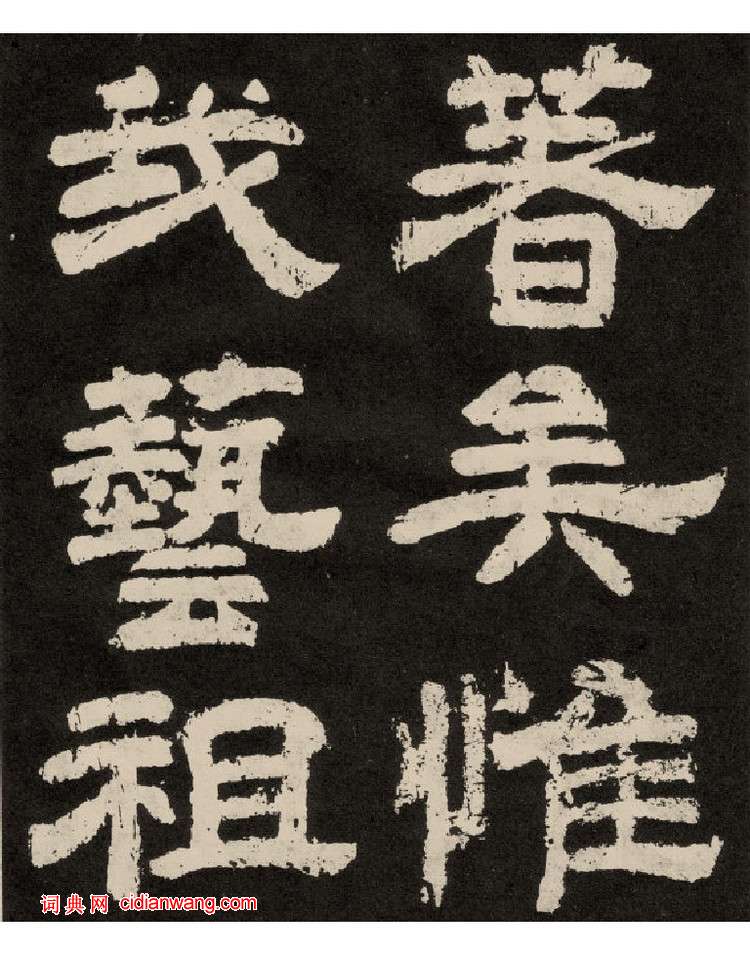 著矣惟
我藝祖
词典网 cidianwang.com